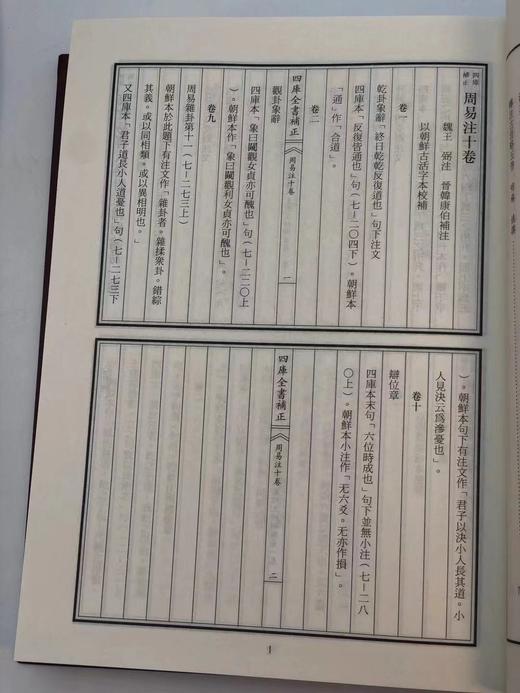 四庫補正
周易注十卷
魏王　弼注　晉韓康伯補注
以朝鮮古活字本校補
卷一
乾卦象辭「終日乾乾反復道也」句下注文
四庫本「反復皆通也」句（七－二〇四下）。朝鮮本
「通」作「合道」。
卷二
四庫全書補正　《周易注十卷　一
觀卦象辭
四庫本「象曰闚觀女貞亦可醜也」句（七－二二〇上
）。朝鮮本作「象曰闚觀利女貞亦可醜也」。
卷九
周易雜卦第十一（七－二七三上）
朝鮮本於此題下有注文作「雜卦者。雜揉衆卦。錯綜
其義。或以同相類。或以異相明也。」
又四庫本「君子道長小人道憂也」句（七－二七三下
）。朝鮮本句下有注文作「君子以決小人長其道。小
人見決云爲滲憂也」。
卷十
辯位章
四庫本末句「六位時成也」句下並無小注（七－二八
〇上）。朝鮮本小注作「无六爻。无亦作損」。
四庫全書補正　《周易注十卷　二
1